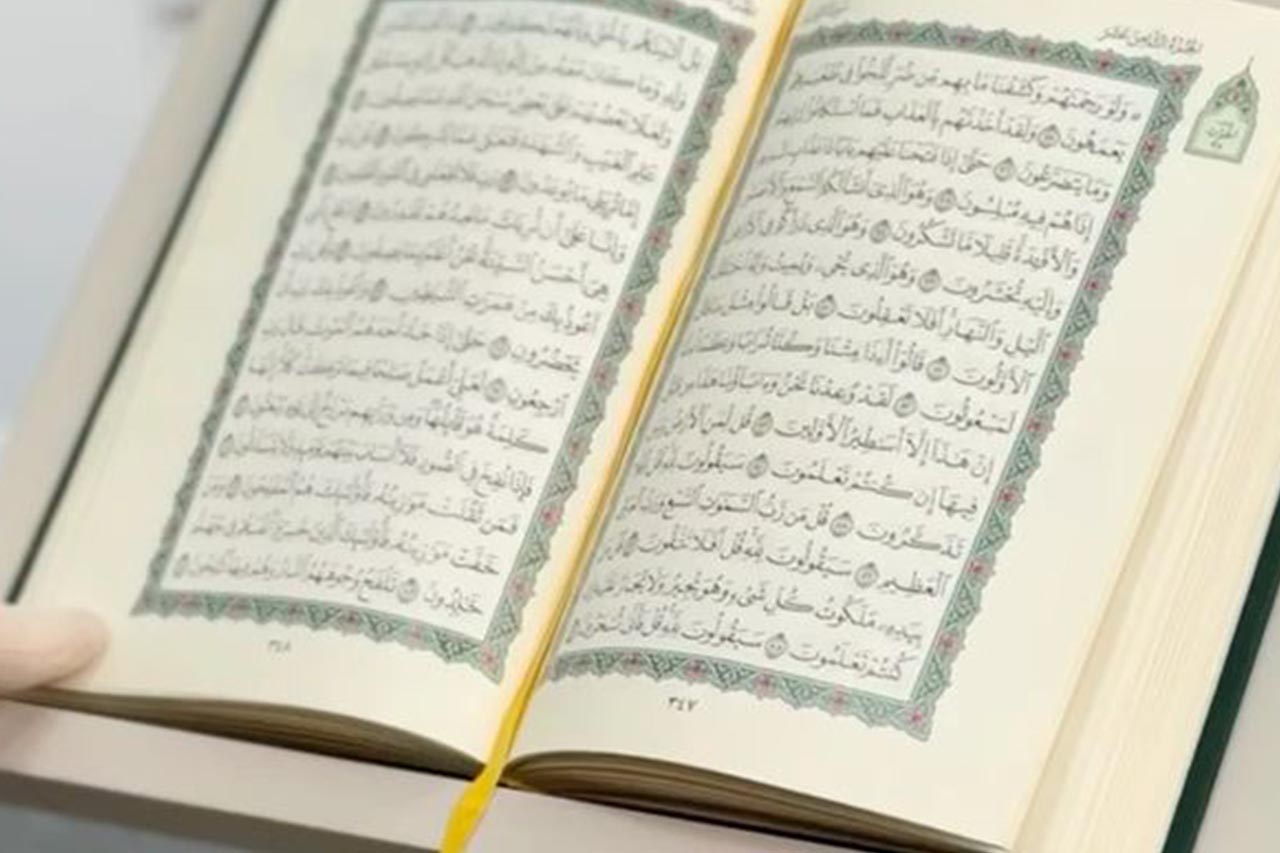 الجزء الثامن عشر
۞ وَلَوْ رَحِمْنَٰهُمْ وَكَشَفْنَا مَا بِهِم مِّن ضُرٍّ لَّلَجُّوا۟ فِى طُغْيَٰنِهِمْ
يَعْمَهُونَ وَلَقَدْ أَخَذْنَٰهُم بِٱلْعَذَابِ فَمَا ٱسْتَكَانُوا۟ لِرَبِّهِمْ
وَمَا يَتَضَرَّعُونَ حَتَّىٰٓ إِذَا فَتَحْنَا عَلَيْهِم بَابًا ذَا عَذَابٍ
إِذَا هُمْ فِيهِ مُبْلِسُونَ وَهُوَ ٱلَّذِىٓ أَنشَأَ لَكُمُ ٱلسَّمْعَ وَٱلْأَبْصَٰرَ
وَٱلْأَفْـِٔدَةَ قَلِيلًا مَّا تَشْكُرُونَ وَهُوَ ٱلَّذِى ذَرَأَكُمْ فِى ٱلْأَرْضِ
وَإِلَيْهِ تُحْشَرُونَ وَهُوَ ٱلَّذِى يُحْىِۦ وَيُمِيتُ وَلَهُ ٱخْتِلَٰفُ
ٱلَّيْلِ وَٱلنَّهَارِ أَفَلَا تَعْقِلُونَ بَلْ قَالُوا۟ مِثْلَ مَا قَالَ
ٱلْأَوَّلُونَ قَالُوٓا۟ أَءِذَا مِتْنَا وَكُنَّا تُرَابًا وَعِظَٰمًا
لَمَبْعُوثُونَ لَقَدْ وُعِدْنَا نَحْنُ وَءَابَآؤُنَا هَٰذَا مِن
إِنْ هَٰذَآ إِلَّآ أَسَٰطِيرُ ٱلْأَوَّلِينَ قُل لِّمَنِ ٱلْأَرْضُ وَمَن
فِيهَآ إِن كُنتُمْ تَعْلَمُونَ سَيَقُولُونَ لِلَّهِ قُلْ
تَذَكَّرُونَ قُلْ مَن رَّبُّ ٱلسَّمَٰوَٰتِ ٱلسَّبْعِ وَرَبُّ
ٱلْعَظِيمِ سَيَقُولُونَ لِلَّهِ قُلْ أَفَلَا تَتَّقُونَ قُلْ مَنۢ
بِيَدِهِۦ مَلَكُوتُ كُلِّ شَىْءٍ وَهُوَ يُجِيرُ وَلَا يُجَارُ عَلَيْهِ
كُنتُمْ تَعْلَمُونَ سَيَقُولُونَ لِلَّهِ قُلْ فَأَنَّىٰ تُسْحَرُونَ
٣٤٧
بَلْ أَتَيْنَٰهُم بِٱلْحَقِّ وَإِنَّهُمْ
وَلَدٍ وَمَا كَانَ مَعَهُۥ مِنْ إِلَٰهٍ إِذًا لَّذَهَبَ كُلُّ إِلَٰهٍۭ
وَلَعَلَا بَعْضُهُمْ عَلَىٰ بَعْضٍ سُبْحَٰنَ ٱللَّهِ عَمَّا يَصِفُونَ
عَٰلِمِ ٱلْغَيْبِ وَٱلشَّهَٰدَةِ فَتَعَٰلَىٰ عَمَّا يُشْرِكُونَ قُل رَّبِّ
إِمَّا تُرِيَنِّى مَا يُوعَدُونَ رَبِّ فَلَا تَجْعَلْنِى فِى ٱلْقَوْمِ ٱلظَّٰلِمِينَ
وَإِنَّا عَلَىٰٓ أَن نُّرِيَكَ مَا نَعِدُهُمْ لَقَٰدِرُونَ ٱدْفَعْ بِٱلَّتِى
هِىَ أَحْسَنُ ٱلسَّيِّئَةَ نَحْنُ أَعْلَمُ بِمَا يَصِفُونَ وَقُل رَّبِّ
أَعُوذُ بِكَ مِنْ هَمَزَٰتِ ٱلشَّيَٰطِينِ وَأَعُوذُ بِكَ رَبِّ أَن
يَحْضُرُونِ حَتَّىٰٓ إِذَا جَآءَ أَحَدَهُمُ ٱلْمَوْتُ قَالَ رَبِّ
ٱرْجِعُونِ لَعَلِّىٓ أَعْمَلُ صَٰلِحًا فِيمَا تَرَكْتُ كَلَّآ إِنَّهَا
كَلِمَةٌ هُوَ قَآئِلُهَا وَمِن وَرَآئِهِم بَرْزَخٌ إِلَىٰ يَوْمِ يُبْعَثُونَ
فَإِذَا نُفِخَ فِى ٱلصُّورِ فَلَآ أَنسَابَ بَيْنَهُمْ يَوْمَئِذٍ وَلَا يَتَسَآءَلُونَ
فَمَن ثَقُلَتْ مَوَٰزِينُهُۥ فَأُو۟لَٰٓئِكَ هُمُ ٱلْمُفْلِحُونَ وَمَنْ
خَفَّتْ مَوَٰزِينُهُۥ فَأُو۟لَٰٓئِكَ ٱلَّذِينَ خَسِرُوٓا۟ أَنفُسَهُمْ فِى جَهَنَّمَ
خَٰلِدُونَ تَلْفَحُ وُجُوهَهُمُ ٱلنَّارُ وَهُمْ فِيهَا كَٰلِحُونَ
٣٤٨